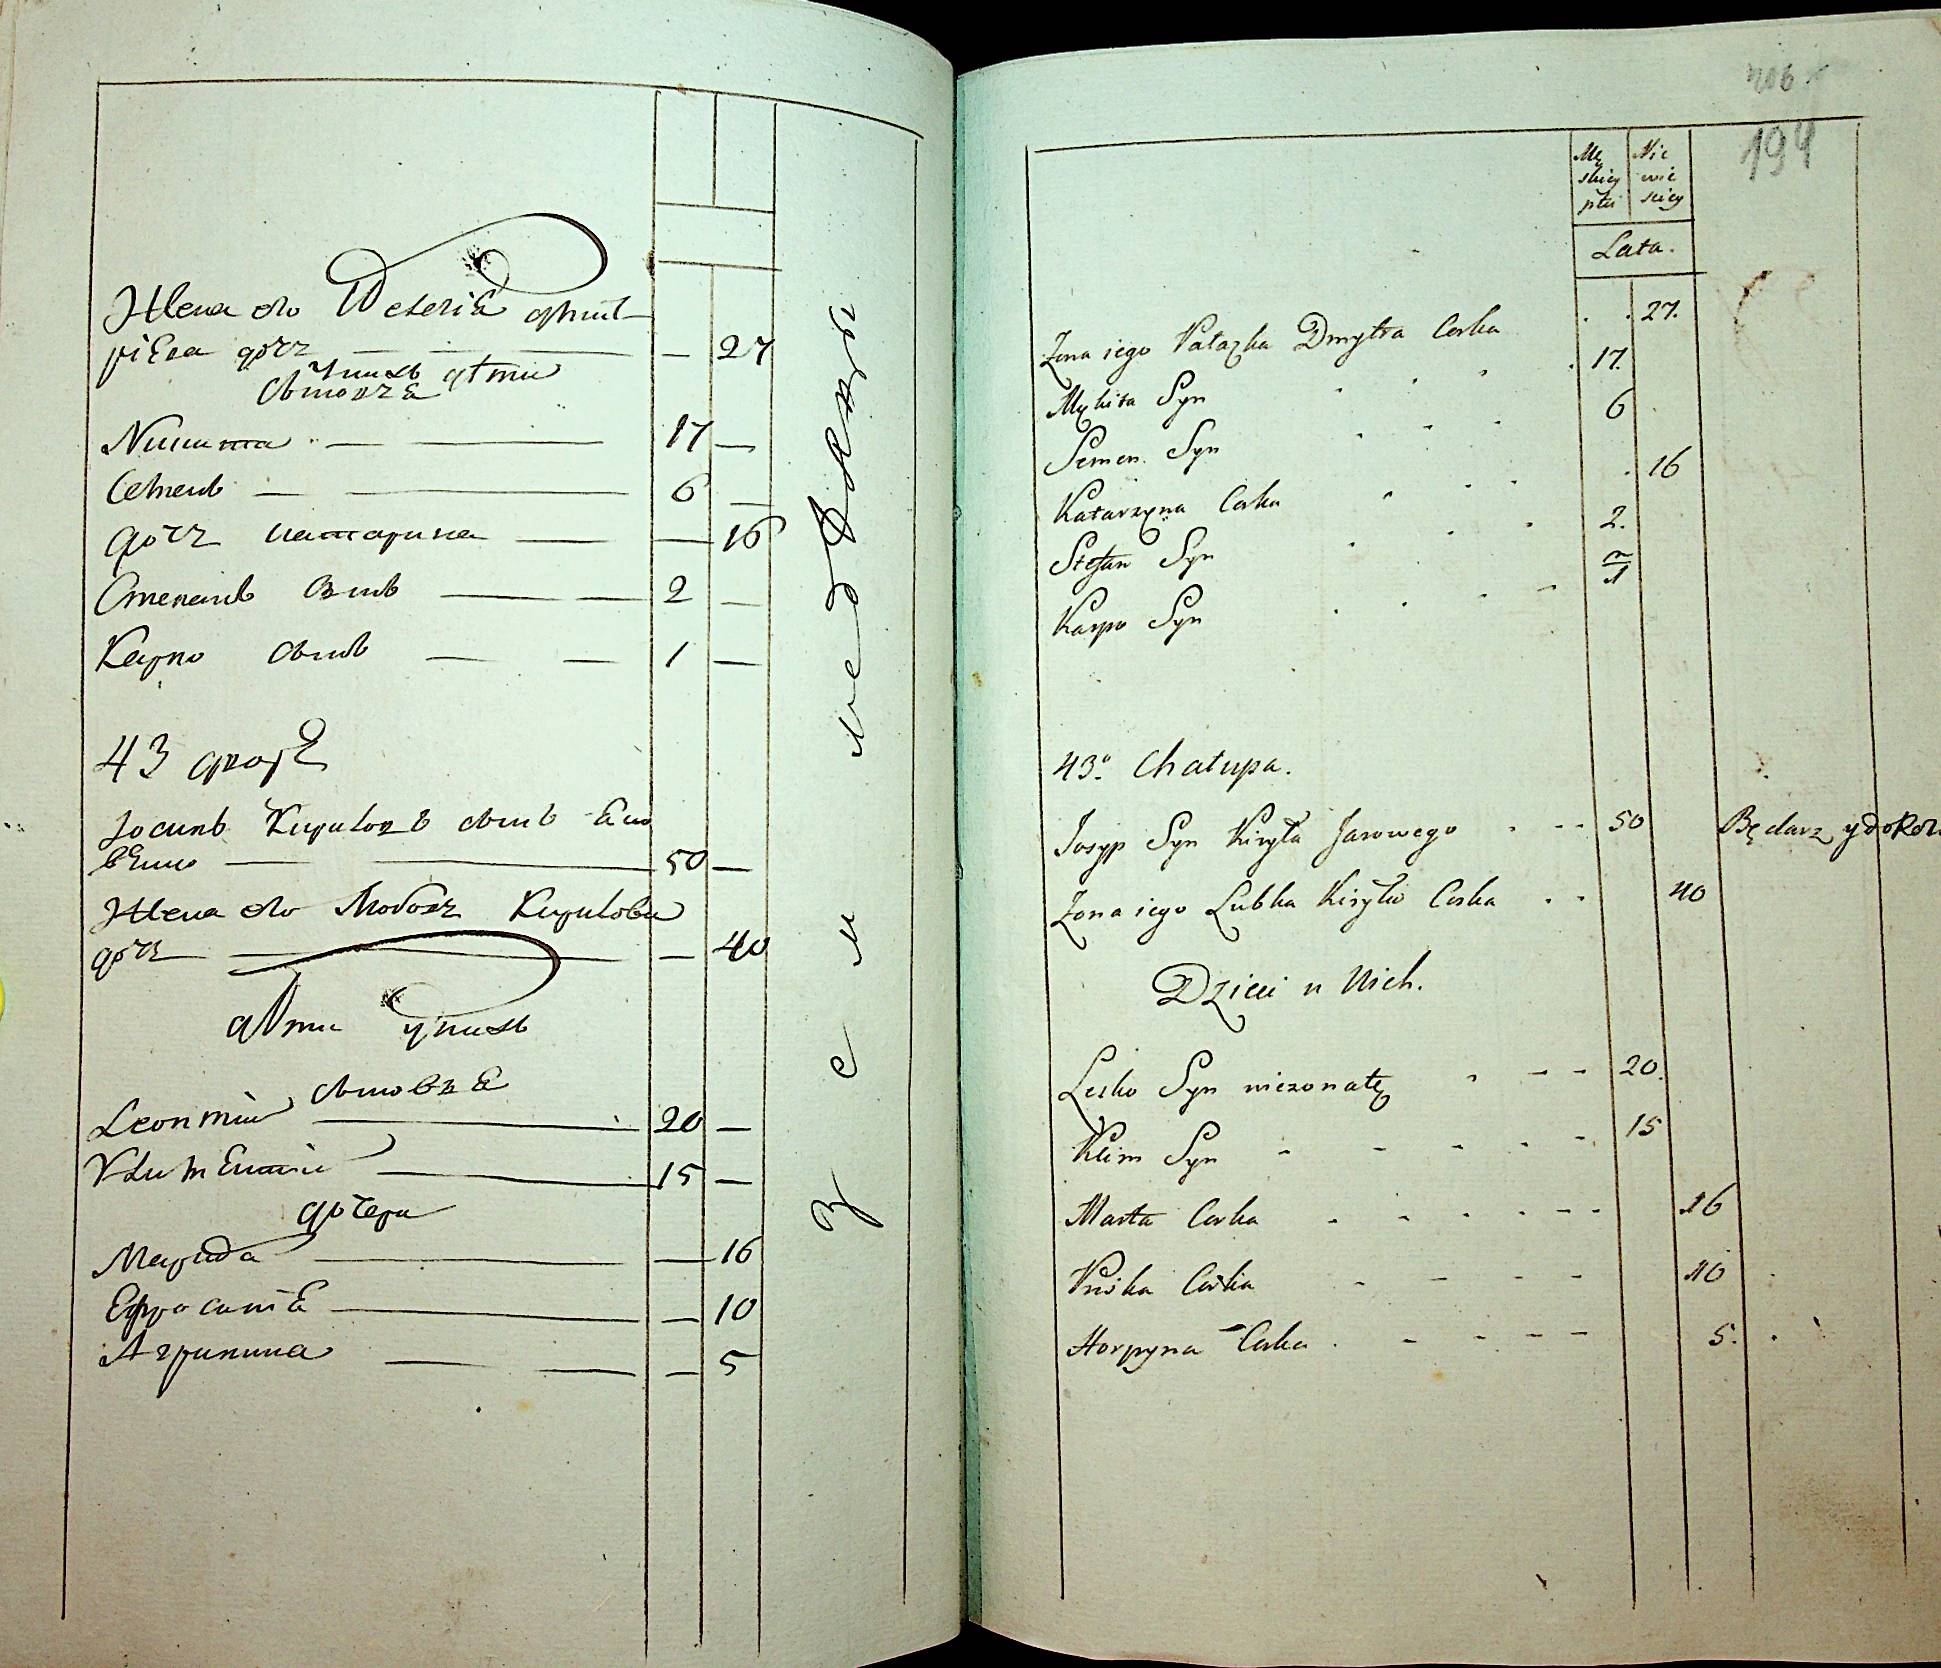 Жена его Пелагія Дмит-
ріева дочь — 27
у нихъ дѣти
сыновья
Никита — 17 —
Семенъ — 6 —
дочь Катарина — 16
Степанъ сынъ — 2 —
Карпо сынъ — 1 —
43 дворъ
Іосипъ Кириловъ сынъ
50 —
Жена его Кирилова
дочь — 40
дѣти у нихъ
сыновья
Леонтій — 20 —
Климентій — 15 —
дочери
Марфа — 16
Ефросинія — 10
Агрипина — 5
194
Mę skiey płci
Nie wie sciey
Lata.
Zona iego Pałazka Dmytra Corka . . 27.
Mykita Syn . . . . 17.
Semen Syn . . . 6
Katarzyna Corka . . . . 16
Stefan Syn . . . 2.
Karpo Syn . . . - 1
43. Chałupa.
Josyp Syn Kiryła Jarowego . - - 50
Zona iego Lubka Kiryło Corka . . 40
Dzieci u Nich.
Lesko Syn niezonaty . - - 20.
Klim Syn - - - . - 15
Marta Corka - - . - - - 16
Pruska Corka - - - - 10
Horpyna Corka . - - - - 5.